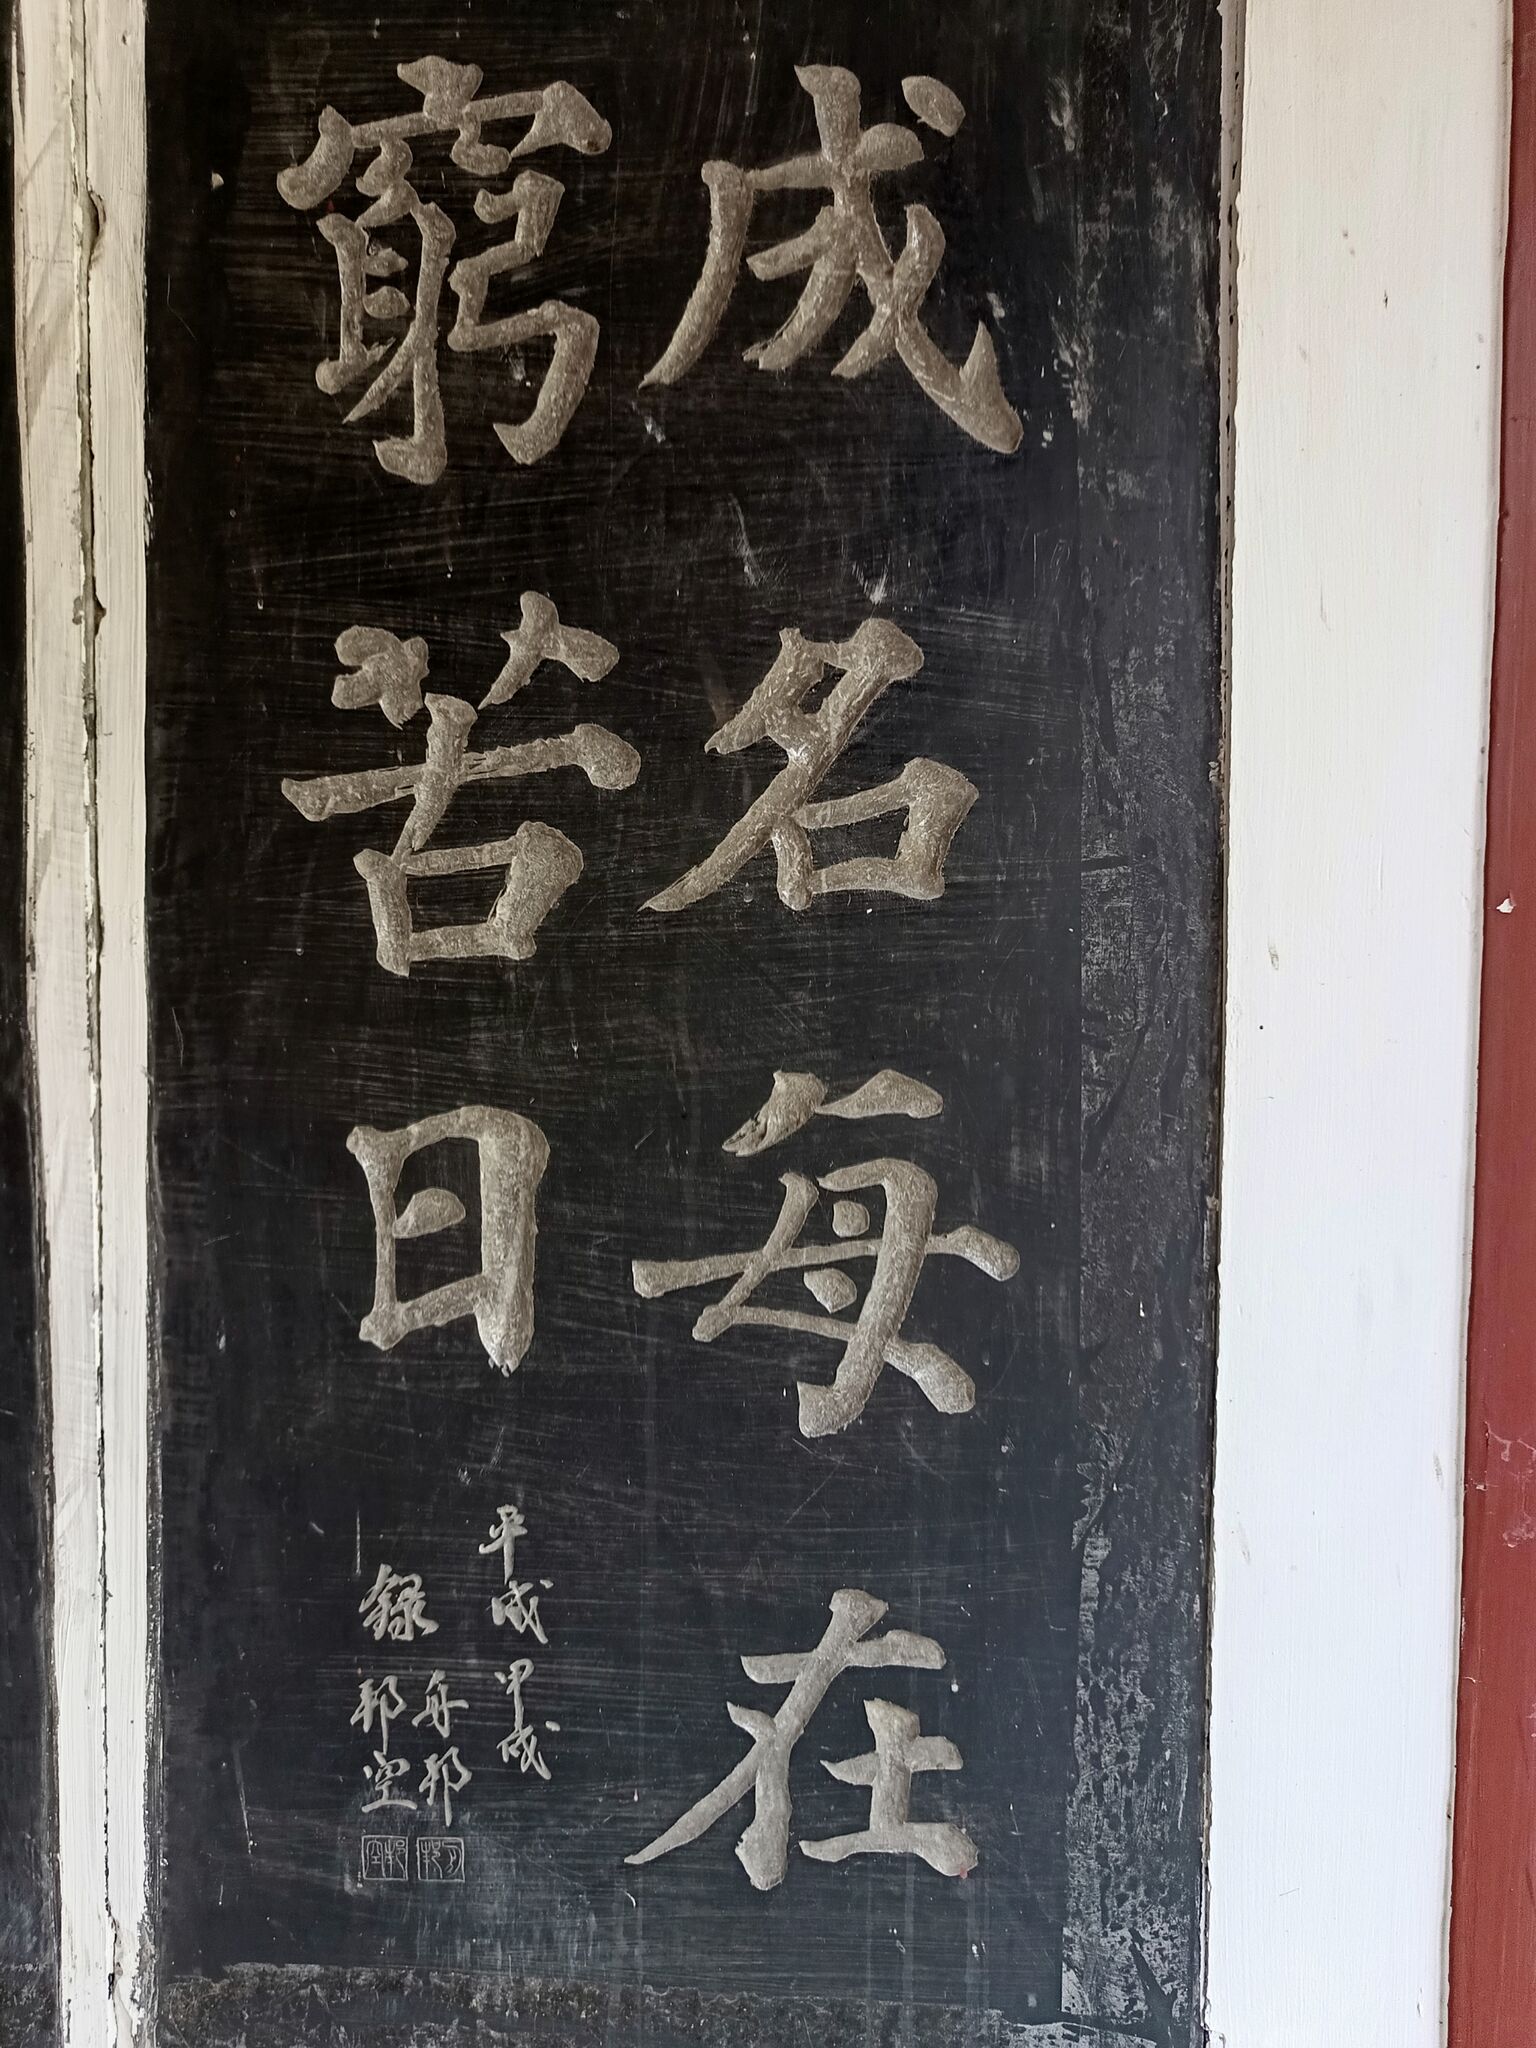 成名每在
窮苦日
平成甲戌
舟邦
錄邦空